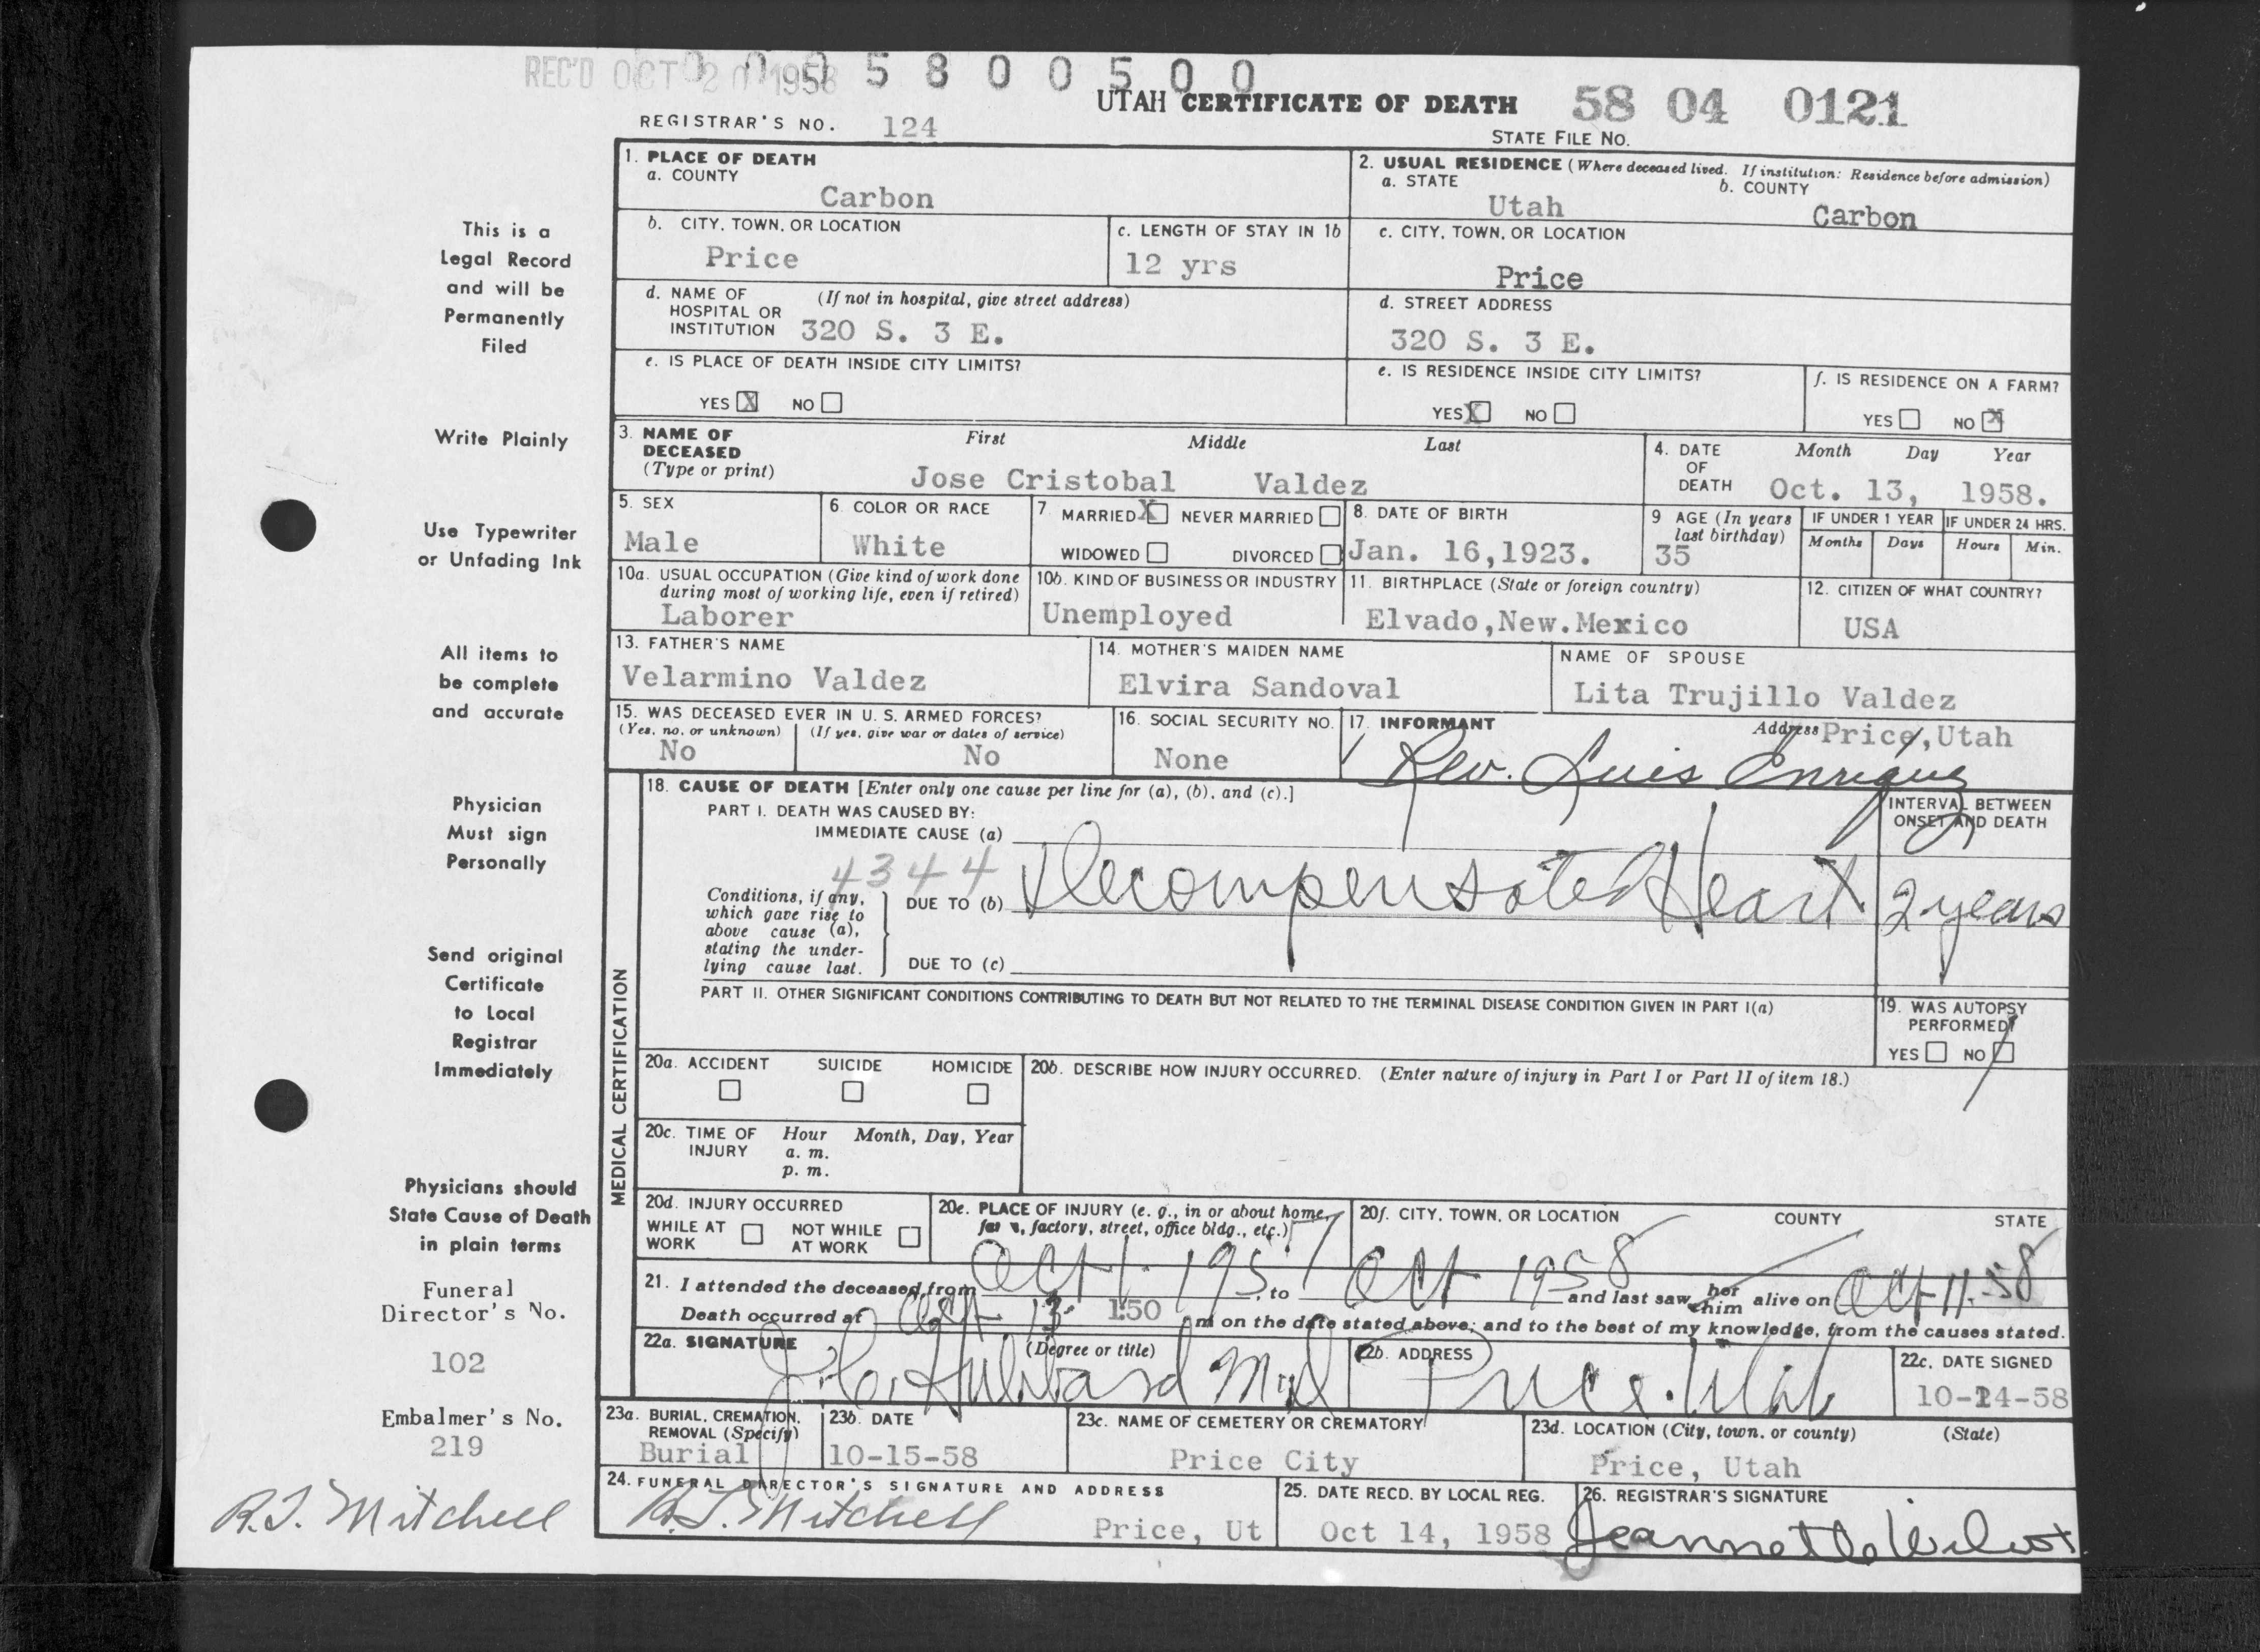 REC'D OCT 20 1958
5 8 0 0 5 0 0
UTAH CERTIFICATE OF DEATH
58 04 0121
REGISTRAR'S NO. 124
STATE FILE NO.
1. PLACE OF DEATH
a. COUNTY
Carbon
2. USUAL RESIDENCE (Where deceased lived. If institution: Residence before admission)
a. STATE
Utah
b. COUNTY
Carbon
b. CITY, TOWN, OR LOCATION
Price
c. LENGTH OF STAY IN 1b
12 yrs
c. CITY, TOWN, OR LOCATION
Price
d. NAME OF HOSPITAL OR INSTITUTION
(If not in hospital, give street address)
320 S. 3 E.
d. STREET ADDRESS
320 S. 3 E.
e. IS PLACE OF DEATH INSIDE CITY LIMITS?
YES X NO
e. IS RESIDENCE INSIDE CITY LIMITS?
YES X NO
f. IS RESIDENCE ON A FARM?
YES NO X
3. NAME OF DECEASED
(Type or print)
First Middle Last
Jose Cristobal Valdez
4. DATE OF DEATH
Month Day Year
Oct. 13, 1958.
5. SEX
Male
6. COLOR OR RACE
White
7. MARRIED X NEVER MARRIED
WIDOWED DIVORCED
8. DATE OF BIRTH
Jan. 16,1923.
9 AGE (In years last birthday)
35
IF UNDER 1 YEAR
Months Days
IF UNDER 24 HRS.
Hours Min.
10a. USUAL OCCUPATION (Give kind of work done during most of working life, even if retired)
Laborer
10b. KIND OF BUSINESS OR INDUSTRY
Unemployed
11. BIRTHPLACE (State or foreign country)
Elvado,New.Mexico
12. CITIZEN OF WHAT COUNTRY?
USA
13. FATHER'S NAME
Velarmino Valdez
14. MOTHER'S MAIDEN NAME
Elvira Sandoval
NAME OF SPOUSE
Lita Trujillo Valdez
15. WAS DECEASED EVER IN U. S. ARMED FORCES?
(Yes, no, or unknown) (If yes, give war or dates of service)
No No
16. SOCIAL SECURITY NO.
None
17. INFORMANT
Address Price, Utah
Rev. Luis Enriquez
MEDICAL CERTIFICATION
18. CAUSE OF DEATH [Enter only one cause per line for (a), (b), and (c).]
PART I. DEATH WAS CAUSED BY:
IMMEDIATE CAUSE (a)
INTERVAL BETWEEN ONSET AND DEATH
4344
Conditions, if any, which gave rise to above cause (a), stating the underlying cause last.
DUE TO (b)
Decompensated Heart
2 years
DUE TO (c)
PART II. OTHER SIGNIFICANT CONDITIONS CONTRIBUTING TO DEATH BUT NOT RELATED TO THE TERMINAL DISEASE CONDITION GIVEN IN PART I(a)
19. WAS AUTOPSY PERFORMED?
YES NO
20a. ACCIDENT SUICIDE HOMICIDE
20b. DESCRIBE HOW INJURY OCCURRED. (Enter nature of injury in Part I or Part II of item 18.)
20c. TIME OF INJURY
Hour Month, Day, Year
a. m.
p. m.
20d. INJURY OCCURRED
WHILE AT WORK NOT WHILE AT WORK
20e. PLACE OF INJURY (e. g., in or about home, farm, factory, street, office bldg., etc.)
20f. CITY, TOWN, OR LOCATION COUNTY STATE
21. I attended the deceased from Oct 1. 1957, to Oct 1958 and last saw her him alive on Oct 11-58
Death occurred at Oct 13 1:50 m on the date stated above; and to the best of my knowledge, from the causes stated.
22a. SIGNATURE
(Degree or title)
J. C. Hubbard Md
22b. ADDRESS
Price. Utah
22c. DATE SIGNED
10-14-58
23a. BURIAL, CREMATION, REMOVAL (Specify)
Burial
23b. DATE
10-15-58
23c. NAME OF CEMETERY OR CREMATORY
Price City
23d. LOCATION (City, town, or county) (State)
Price, Utah
24. FUNERAL DIRECTOR'S SIGNATURE AND ADDRESS
R.J. Mitchell
Price, Ut
25. DATE RECD. BY LOCAL REG.
Oct 14, 1958
26. REGISTRAR'S SIGNATURE
Jeannette
This is a
Legal Record
and will be
Permanently
Filed
Write Plainly
Use Typewriter
or Unfading Ink
All items to
be complete
and accurate
Physician
Must sign
Personally
Send original
Certificate
to Local
Registrar
Immediately
Physicians should
State Cause of Death
in plain terms
Funeral
Director's No.
102
Embalmer's No.
219
R.J. Mitchell